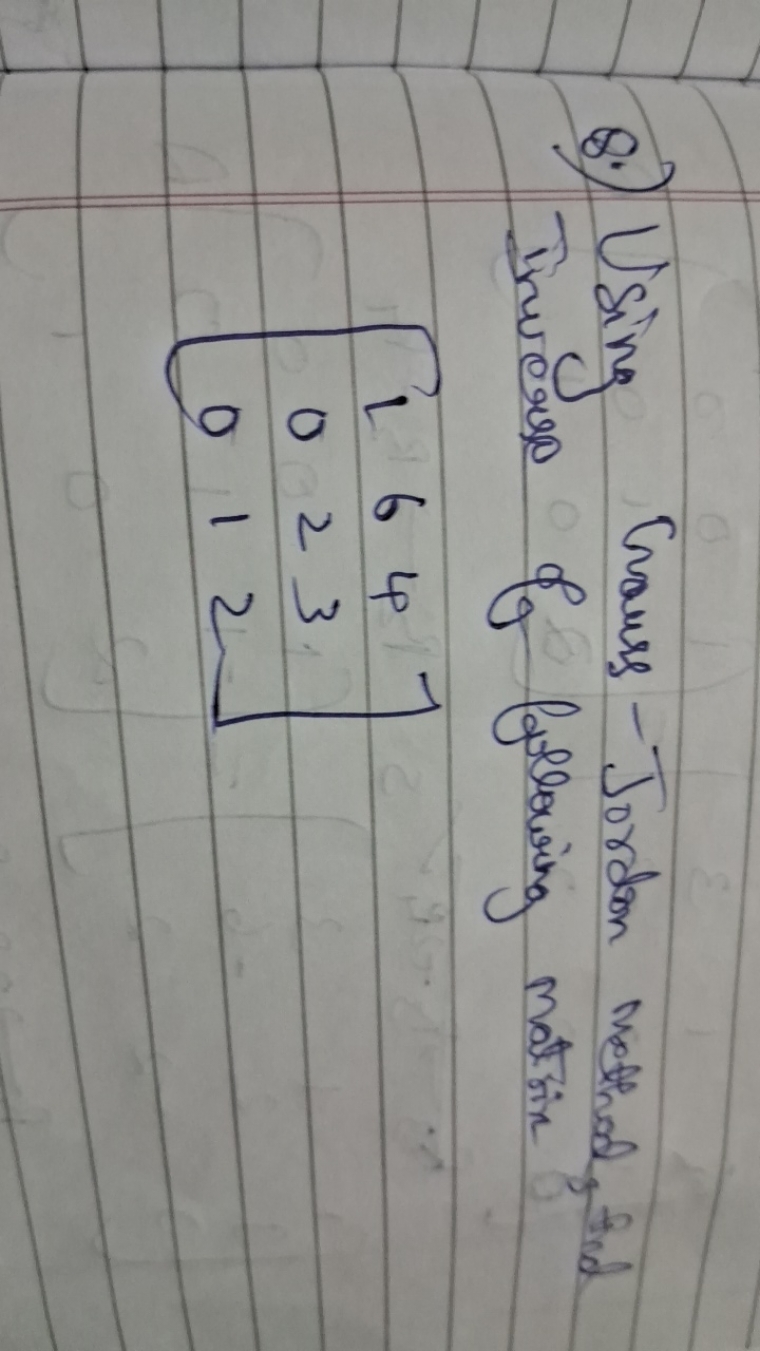 8.) Using Gauss-Jordan method, find
Inverse of following matrix
1 6 4
0 2 3
0 1 2